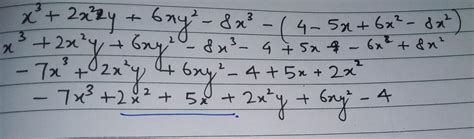 x³ + 2x²y + 6xy² - 8x³ - (4 - 5x + 6x² - 8x²)
x³ + 2x²y + 6xy² - 8x³ - 4 + 5x - 6x² + 8x²
- 7x³ + 2x²y + 6xy² - 4 + 5x + 2x²
- 7x³ + 2x² + 5x + 2x²y + 6xy² - 4